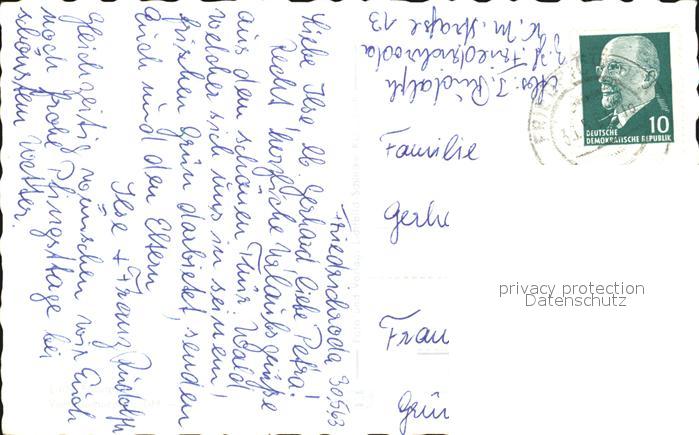 Friedrichroda 30.5.63
Liebe Ilse, lb. Gerhard, liebe Petra!
Recht herzliche Urlaubsgrüße
aus dem schönen Thür. Wald
welcher sich uns in seinem
frischen Grün darbietet, senden
Euch und den Eltern
Ilse + Franz Rudolph
Gleichzeitig wünschen wir Euch
noch frohe Pfingsttage bei
schönstem Wetter.
Abs. F. Rudolph
z. Zt. Friedrichroda
K. M. Straße 13
DEUTSCHE
DEMOKRATISCHE REPUBLIK
10
Familie
Gerh
Frau
Grün
privacy protection
Datenschutz